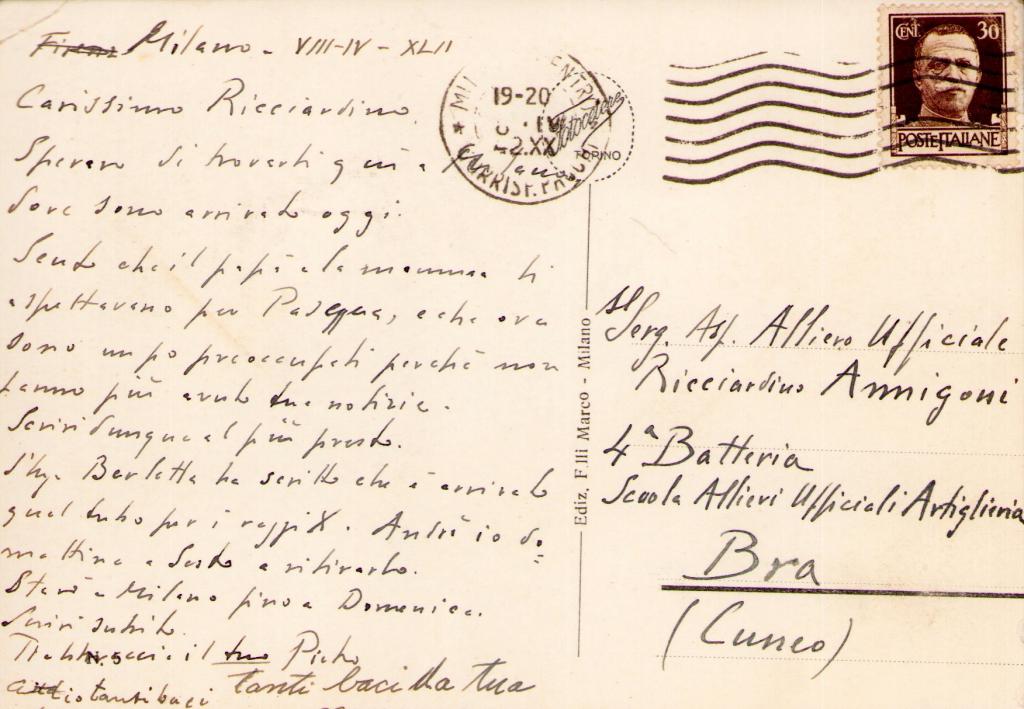 Milano - VIII-IV-XLII
Carissimo Ricciardino.
Speravo di trovarti qui a Milano
dove sono arrivato oggi.
Sento che il papà e la mamma ti
aspettavano per Pasqua, e che ora
sono un po preoccupati perchè non
hanno più avuto tue notizie.
Scrivi dunque al più presto.
L'Ing. Barletta ha scritto che è arrivato
quel tubo per i raggi X. Andrò io do=
mattina a Sesto a ritirarlo.
Starò a Milano fino a Domenica.
Scrivi subito.
Ti abbraccia il tuo Pietro
N. 5
tanti baci
tanti baci dalla tua
19-20
IV
CORRISP. PACCHI
Fotocelere
TORINO
CENT. 30
POSTE ITALIANE
Ediz. F.lli Marco - Milano
al Serg. Asp. Allievo Ufficiale
Ricciardino Annigoni
4ª Batteria
Scuola Allievi Ufficiali Artiglieria
Bra
(Cuneo)